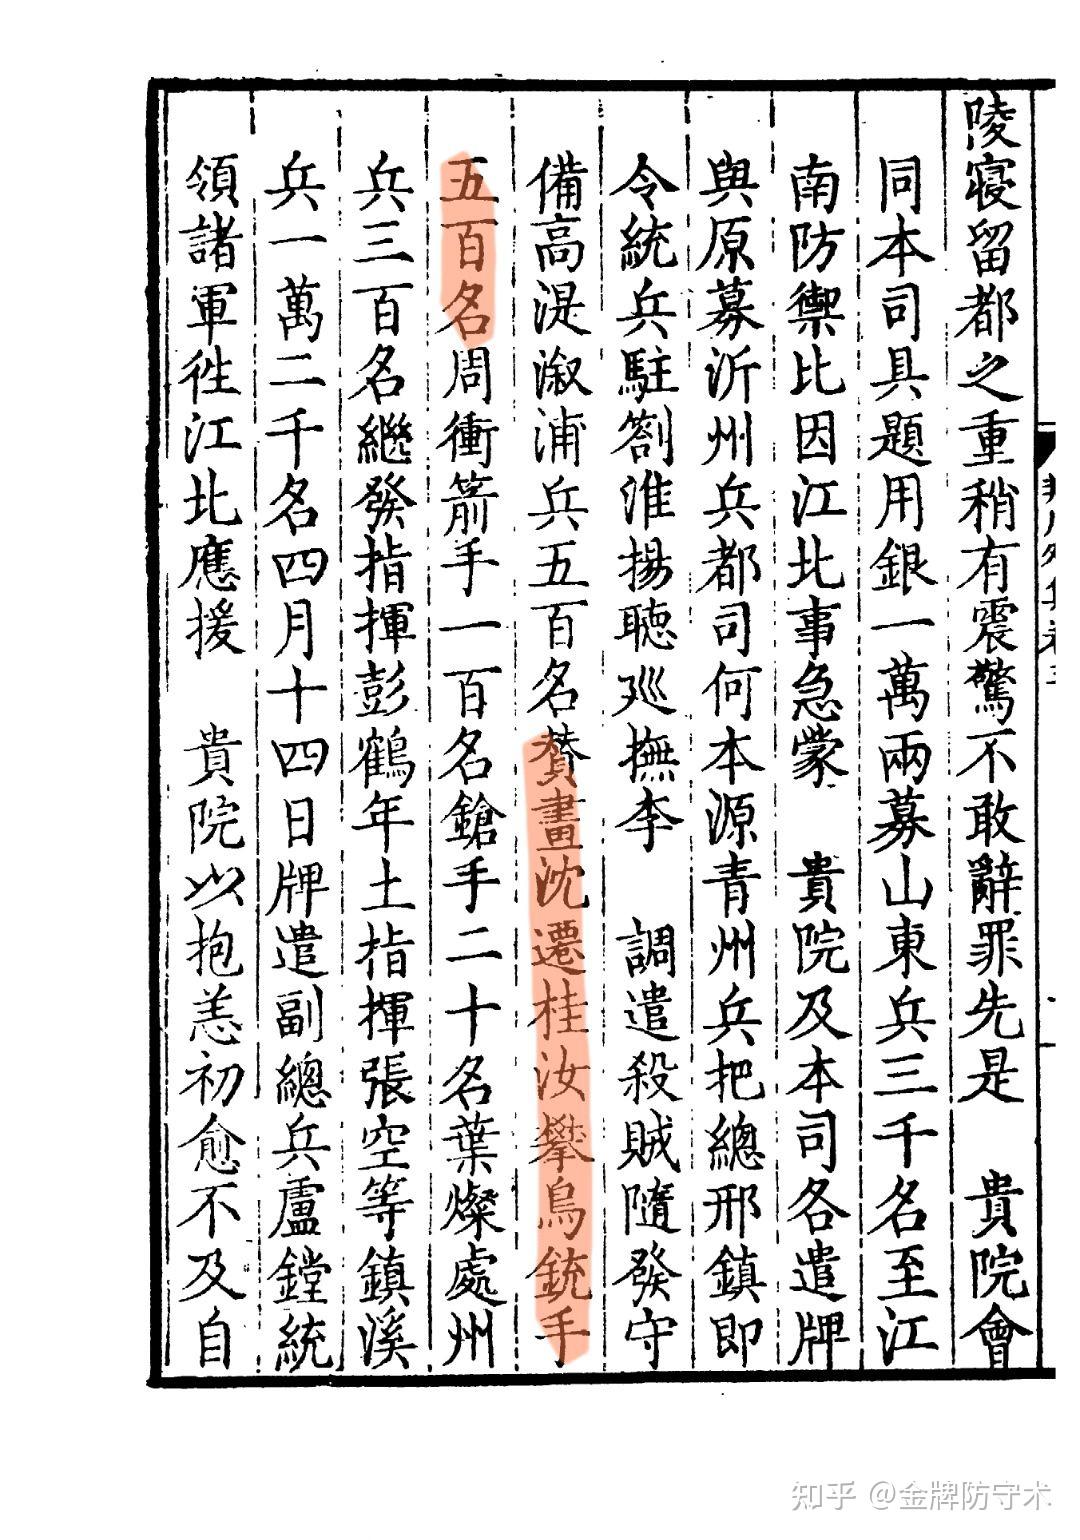 陵寢留都之重稍有震驚不敢辭罪先是　貴院會
同本司具題用銀一萬兩募山東兵三千名至江
南防禦比因江北事急蒙　貴院及本司各遣牌
與原募沂州兵都司何本源青州兵把總邢鎮即
令統兵駐劄淮揚聽廵撫李　調遣殺賊隨發守
備高湜溆浦兵五百名贊畫沈遷桂汝攀鳥銃手
五百名周衝箭手一百名鎗手二十名葉燦處州
兵三百名繼發指揮彭鶴年土指揮張空等鎮溪
兵一萬二千名四月十四日牌遣副總兵盧鏜統
領諸軍徃江北應援　貴院以抱恙初愈不及自
知乎 @金牌防守术